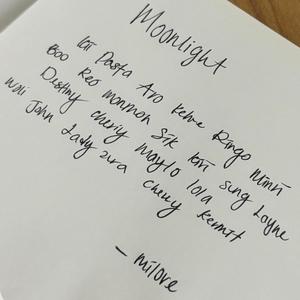 Moonlight
Pasta Aro Kehne Ringo Minni
Boo Reo mormon Sik Kari Sung Loyne
Destiny cheriy maylo lola
John Lady zura cheuy Kermit
- milove